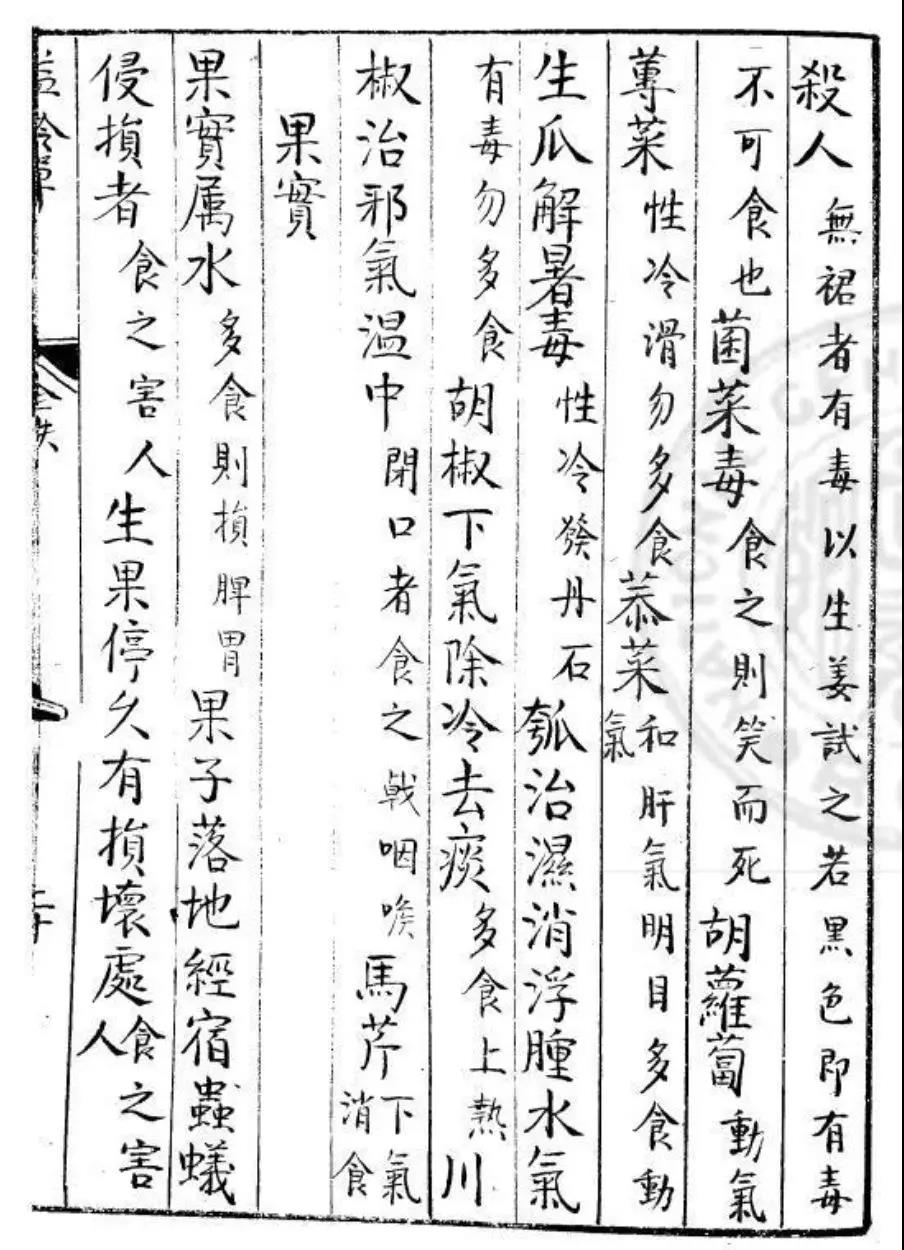 殺人無裙者有毒以生姜試之若黑色即有毒
不可食也菌菜毒食之則笑而死胡蘿蔔動氣
蓴菜性冷滑勿多食菾菜和肝氣明目多食動氣
生瓜解暑毒性冷發丹石瓠治濕消浮腫水氣
有毒勿多食胡椒下氣除冷去痰多食上熱川
椒治邪氣温中閉口者食之戟咽喉馬芹下氣消食
果實
果實属水多食則損脾胃果子落地經宿蟲蟻
侵損者食之害人生果停久有損壞處食之害人